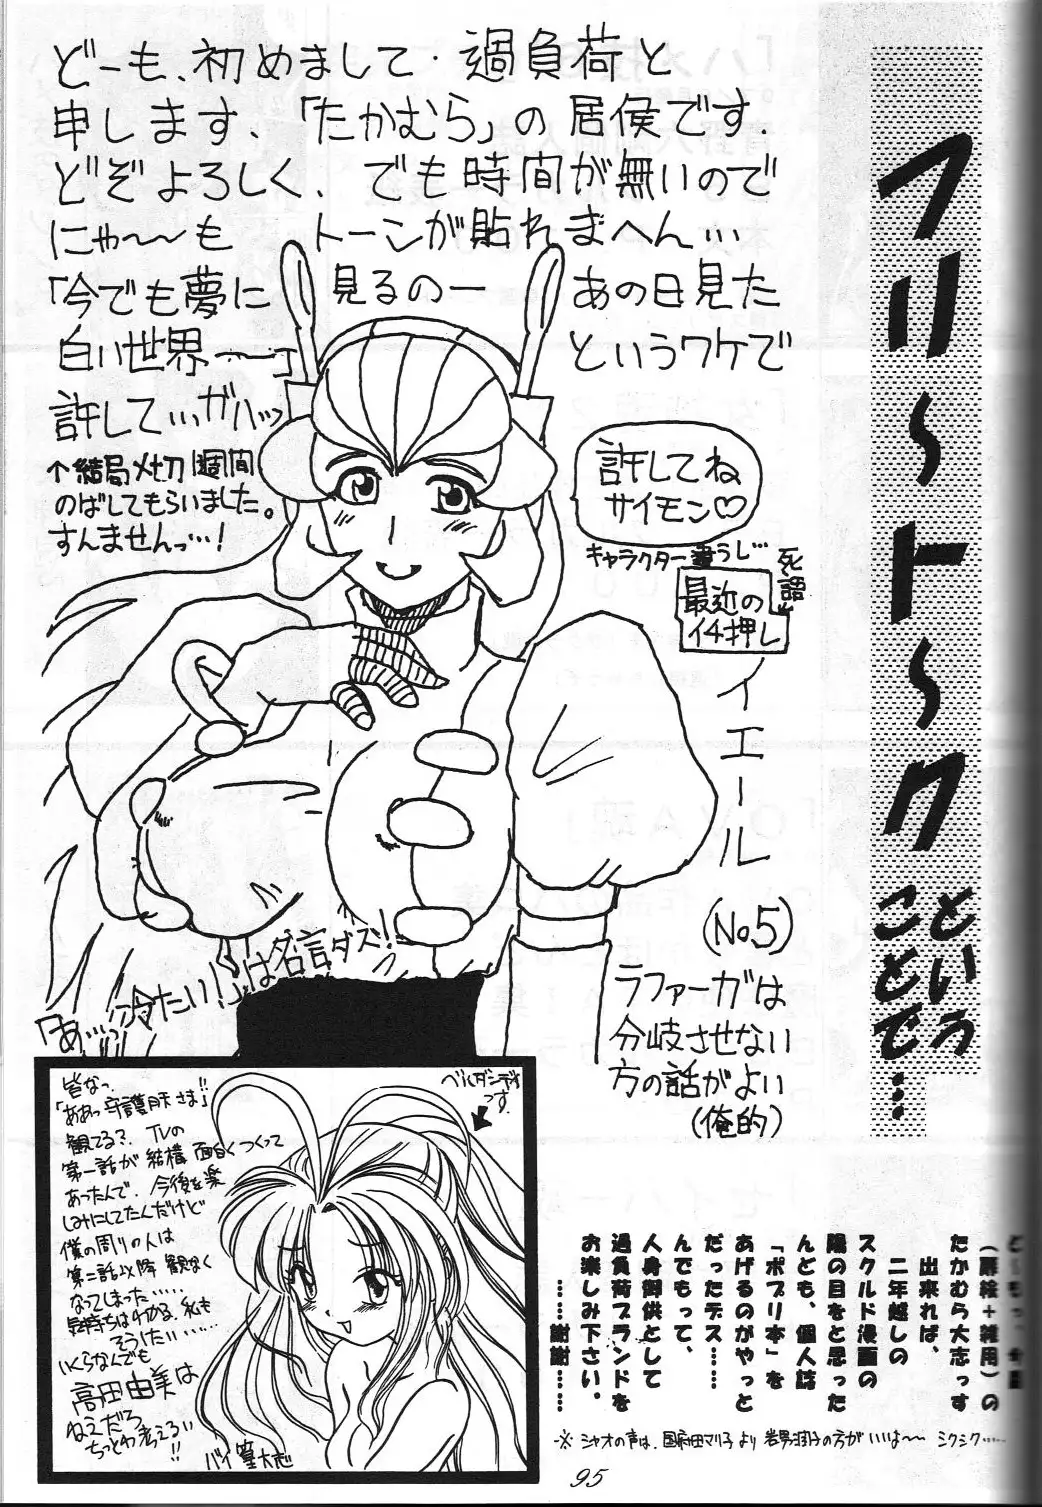 フリ〜ト〜クということで…
どーも、初めまして・過負荷と
申します、「たかむら」の居候です.
どぞよろしく、でも時間が無いので
にゃ〜〜も トーンが貼れまへん…
「今でも夢に 見るのー あの日見た
白い世界ー―」 というワケで
許して…ガハッ
↑結局〆切1週間
のばしてもらいました。
すんませんっ…!
許してね
サイモン♡
キャラクター違うし…
死語
最近の
イチ押し
イエール
(No.5)
ラファーガは
分岐させない
方の話がよい
(俺的)
「あ…っ冷たい!」は名言ダズ!
皆なっ.
「ああっ守護月天さま」
観てる?. TVの
第一話が結構面白くつくって
あったんで.今後を楽
しみにしてたんだけど
僕の周りの人は
第二話以降観なく
なってしまった……
気持ちはわかる.私も
そうだ……
いくらなんでも
高田由美は
ねえだろ
ちっとわ考えろい
!!
ベルダンディ
っす.
(扉絵+雑用)の
たかむら大志っす
出来れば、
二年越しの
スクルド漫画の
陽の目をと思った
んども、個人誌
「ポプリ本」を
あげるのがやっと
だったデス……
んでもって、
人身御供として
過負荷ブランドを
お楽しみ下さい。
……謝謝……
※ シャオの声は、国府田マリ子より岩男潤子の方がいいは〜〜 シクシク……
95